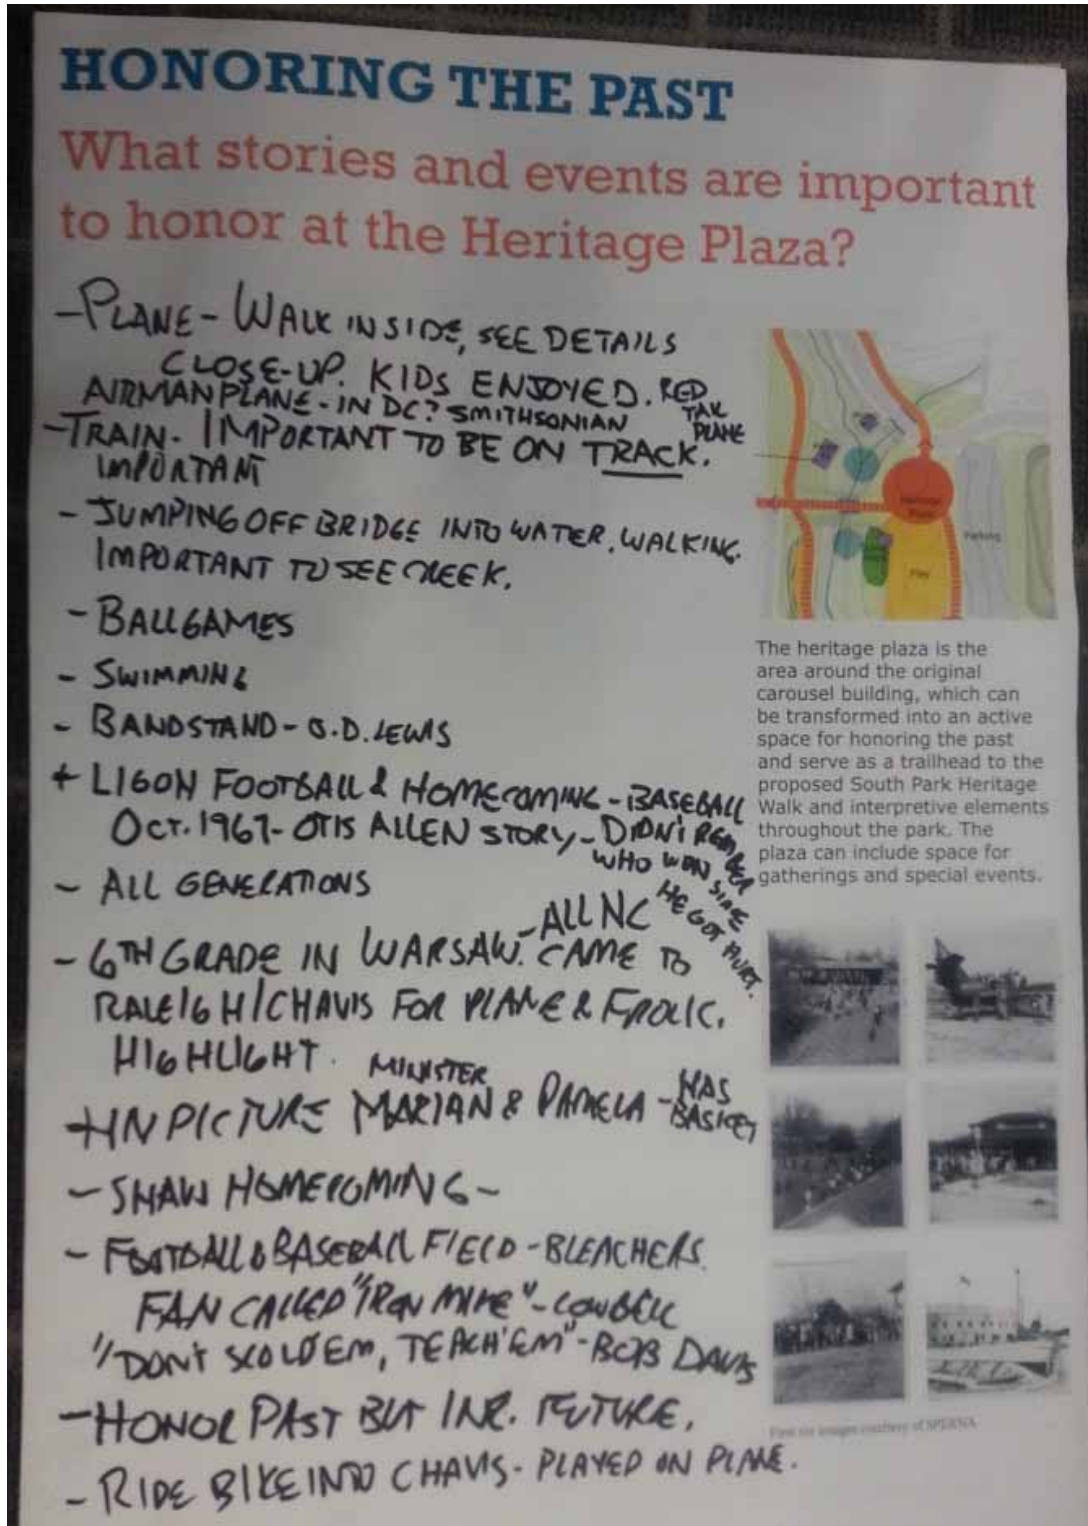 HONORING THE PAST
What stories and events are important
to honor at the Heritage Plaza?
- PLANE - WALK INSIDE, SEE DETAILS
CLOSE-UP. KIDS ENJOYED. RED
TAIL
PLANE
AIRMAN PLANE - IN DC? SMITHSONIAN
- TRAIN - IMPORTANT TO BE ON TRACK.
IMPORTANT
- JUMPING OFF BRIDGE INTO WATER. WALKING.
IMPORTANT TO SEE CREEK.
- BALLGAMES
- SWIMMING
- BANDSTAND - O.D. LEWIS
+ LIGON FOOTBALL & HOMECOMING - BASEBALL
OCT. 1967 - OTIS ALLEN STORY - DIDN'T REMEMBER
WHO WON SINCE
HE GOT HURT.
- ALL GENERATIONS
- ALL NC
- 6TH GRADE IN WARSAW. CAME TO
RALEIGH/CHAVIS FOR PLANE & FROLIC.
HIGHLIGHT.
MINISTER
+ IN PICTURE MARIAN & PAMELA - HAS
BASKET
- SHAW HOMECOMING -
- FOOTBALL & BASEBALL FIELD - BLEACHERS.
FAN CALLED "IRON MIKE" - COWBELL
"DON'T SCOLD EM, TEACH 'EM" - BOB DAVIS
- HONOR PAST BUT INR. FUTURE.
- RIDE BIKE INTO CHAVIS - PLAYED ON PLANE.
Heritage
Plaza
Parking
Play
The heritage plaza is the
area around the original
carousel building, which can
be transformed into an active
space for honoring the past
and serve as a trailhead to the
proposed South Park Heritage
Walk and interpretive elements
throughout the park. The
plaza can include space for
gatherings and special events.
First six images courtesy of SPERNA